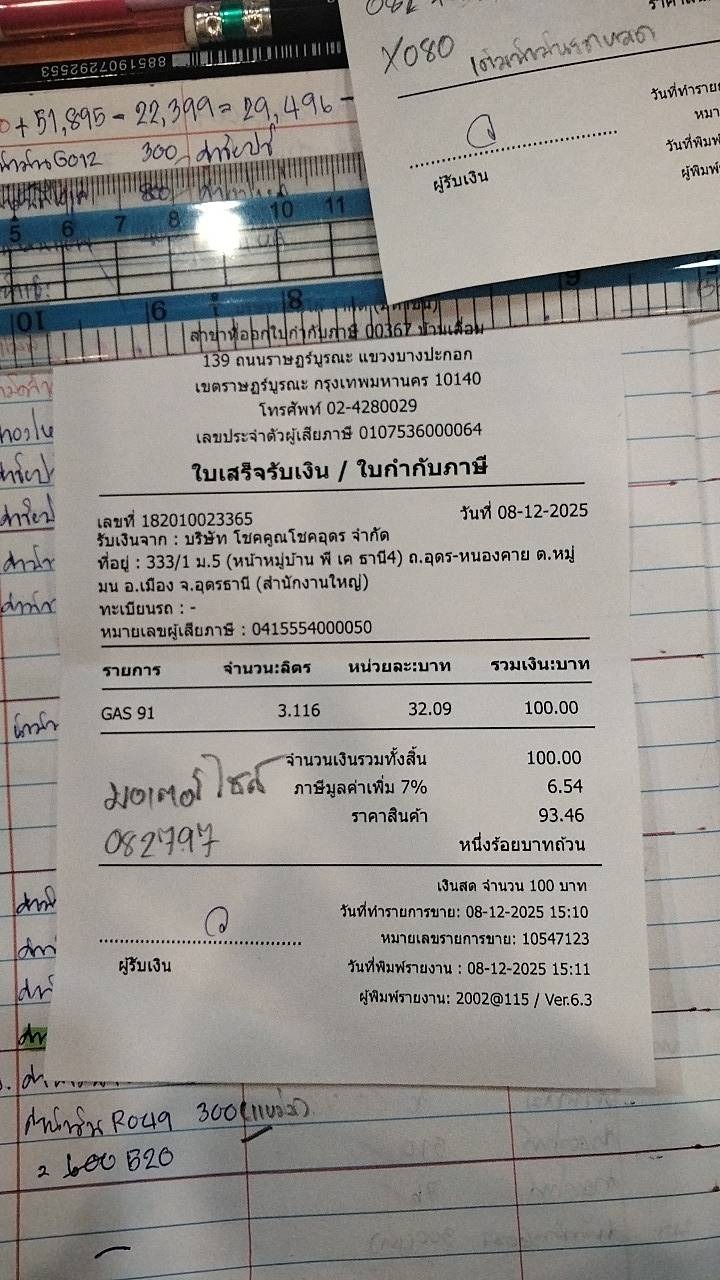 8851907292553
X080
วันที่ทำราย
ผู้รับเงิน
+51,895 - 22,399 = 29,496 -
G012 300
5 6 7 8 10 11
สาขาที่ออกใบกำกับภาษี 00367 บ้านเลื่อม
139 ถนนราษฎร์บูรณะ แขวงบางปะกอก
เขตราษฎร์บูรณะ กรุงเทพมหานคร 10140
โทรศัพท์ 02-4280029
เลขประจำตัวผู้เสียภาษี 0107536000064
ใบเสร็จรับเงิน / ใบกำกับภาษี
เลขที่ 182010023365 วันที่ 08-12-2025
รับเงินจาก : บริษัท โชคคูณโชคอุดร จำกัด
ที่อยู่ : 333/1 ม.5 (หน้าหมู่บ้าน พี เค ธานี4) ถ.อุดร-หนองคาย ต.หมู
มน อ.เมือง จ.อุดรธานี (สำนักงานใหญ่)
ทะเบียนรถ : -
หมายเลขผู้เสียภาษี : 0415554000050
รายการ จำนวน:ลิตร หน่วยละ:บาท รวมเงิน:บาท
GAS 91 3.116 32.09 100.00
จำนวนเงินรวมทั้งสิ้น 100.00
มอเตอร์ไซส์ ภาษีมูลค่าเพิ่ม 7% 6.54
082797 ราคาสินค้า 93.46
หนึ่งร้อยบาทถ้วน
เงินสด จำนวน 100 บาท
วันที่ทำรายการขาย: 08-12-2025 15:10
หมายเลขรายการขาย: 10547123
ผู้รับเงิน วันที่พิมพ์รายงาน : 08-12-2025 15:11
ผู้พิมพ์รายงาน: 2002@115 / Ver.6.3
R049 300